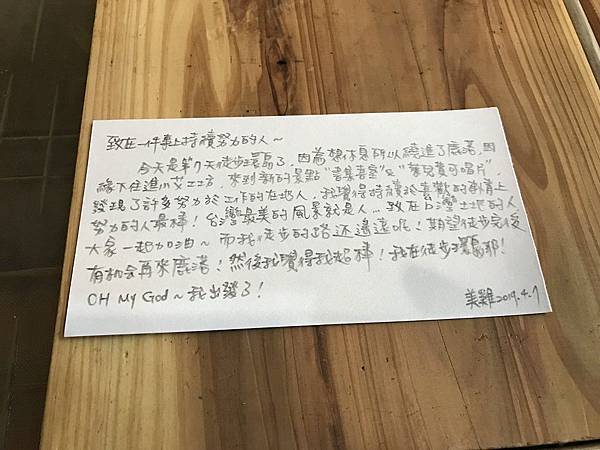 致在一件事上持續努力的人~
今天是第7天徒步環島了,因為想休息所以繞進了鹿港,因
緣下住進小艾工坊,來到新的景點"書集喜室"&"葉兒寶可唱片",
發現了許多努力於工作的在地人,我覺得持續於喜歡的事情上
努力的人最棒!台灣最美的風景就是人...致在台灣土地的人
大家一起加油~而我徒步的路还遙遠呢!期望徒步完後
有机会再來鹿港!然後我覺得我超棒!我在徒步環島耶!
OH My God~我出發了!
美雞2019.4.7